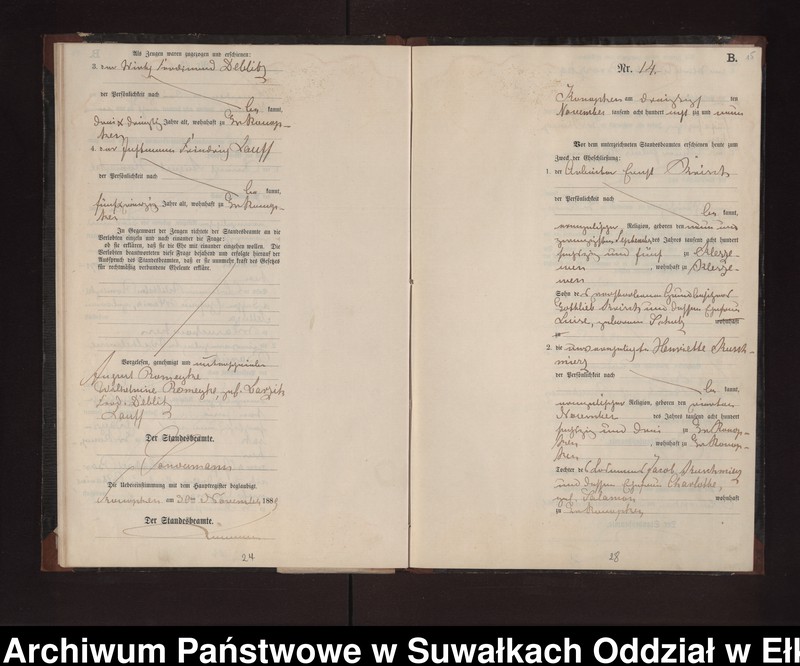 Als Zeugen waren zugezogen und erschienen:
3. der Wirth Ferdinand Deblitz
der Persönlichkeit nach
kannt,
Jahre alt, wohnhaft zu Gr. Konop-
ken
4. der Lauff
der Persönlichkeit nach
kannt,
Jahre alt, wohnhaft zu Gr. Konop-
ken
In Gegenwart der Zeugen richtete der Standesbeamte an die
Verlobten einzeln und nach einander die Frage:
ob sie erklären, daß sie die Ehe mit einander eingehen wollen. Die
Verlobten beantworteten diese Frage bejahend und erfolgte hierauf der
Ausspruch des Standesbeamten, daß er sie nunmehr kraft des Gesetzes
für rechtmäßig verbundene Eheleute erkläre.
Vorgelesen, genehmigt und unterschrieben
August Romeyke
Wilhelmine Romeyke, geb.
Ferd. Deblitz
Lauff
Der Standesbeamte.
Die Uebereinstimmung mit dem Hauptregister beglaubigt.
Konopken am 30ten November 188
Der Standesbeamte.
24
B.
Nr. 14.
Konopken am dreißigsten
November tausend acht hundert acht zig und neun
Vor dem unterzeichneten Standesbeamten erschienen heute zum
Zweck der Eheschließung:
1. der Arbeiter Ernst
der Persönlichkeit nach
kannt,
evangelischer Religion, geboren den neun und
zwanzigsten September des Jahres tausend acht hundert
sechszig und fünf zu
, wohnhaft zu
Sohn des verstorbenen Grundbesitzers
Gottlieb und dessen Ehefrau
Luise, geborenen wohnhaft
zu
2. die unverehelichte Henriette Kusch-
mierz
der Persönlichkeit nach
kannt,
evangelischer Religion, geboren den vierten
November des Jahres tausend acht hundert
sechszig und drei zu Gr. Konop-
ken , wohnhaft zu Gr. Konop-
ken
Tochter des Jacob Kuschmierz
und dessen Ehefrau Charlotte,
geb. Salamon wohnhaft
zu Gr. Konopken
28
Archiwum Państwowe w Suwałkach Oddział w Ełk